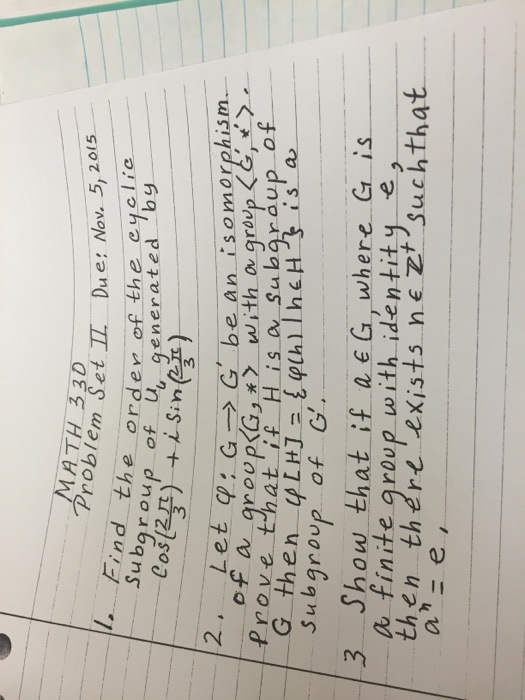 MATH 33D
Problem Set II Due: Nov. 5, 2015
1. Find the order of the cyclic
subgroup of U4 generated by
Cos(2π/3) + i Sin(2π/3)
2. Let φ: G → G' be an isomorphism
of a group <G, *> with a group <G', *'>.
Prove that if H is a subgroup of
G then φ[H] = {φ(h) | h ∈ H} is a
subgroup of G'.
3 Show that if a ∈ G, where G is
a finite group with identity e,
then there exists n ∈ Z⁺ such that
aⁿ = e,